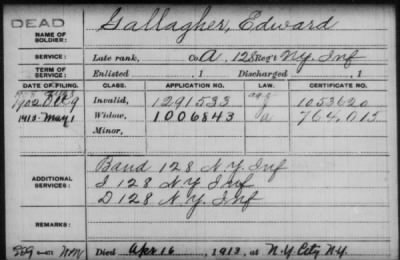 DEAD
NAME OF SOLDIER: Gallagher, Edward
SERVICE: Late rank, Co. A, 128 Reg't N.Y. Inf
TERM OF SERVICE: Enlisted , 1 Discharged , 1
DATE OF FILING. CLASS. APPLICATION NO. LAW. CERTIFICATE NO.
1902 Dec 9 Invalid, 1291533 1053620
1913-May 1 Widow, 1006843 764,015
Minor,
ADDITIONAL SERVICES:
Band 128 N.Y. Inf
I 128 N.Y. Inf
D 128 N.Y. Inf
REMARKS:
Died Apr 16, 1913, at N.Y. City N.Y.